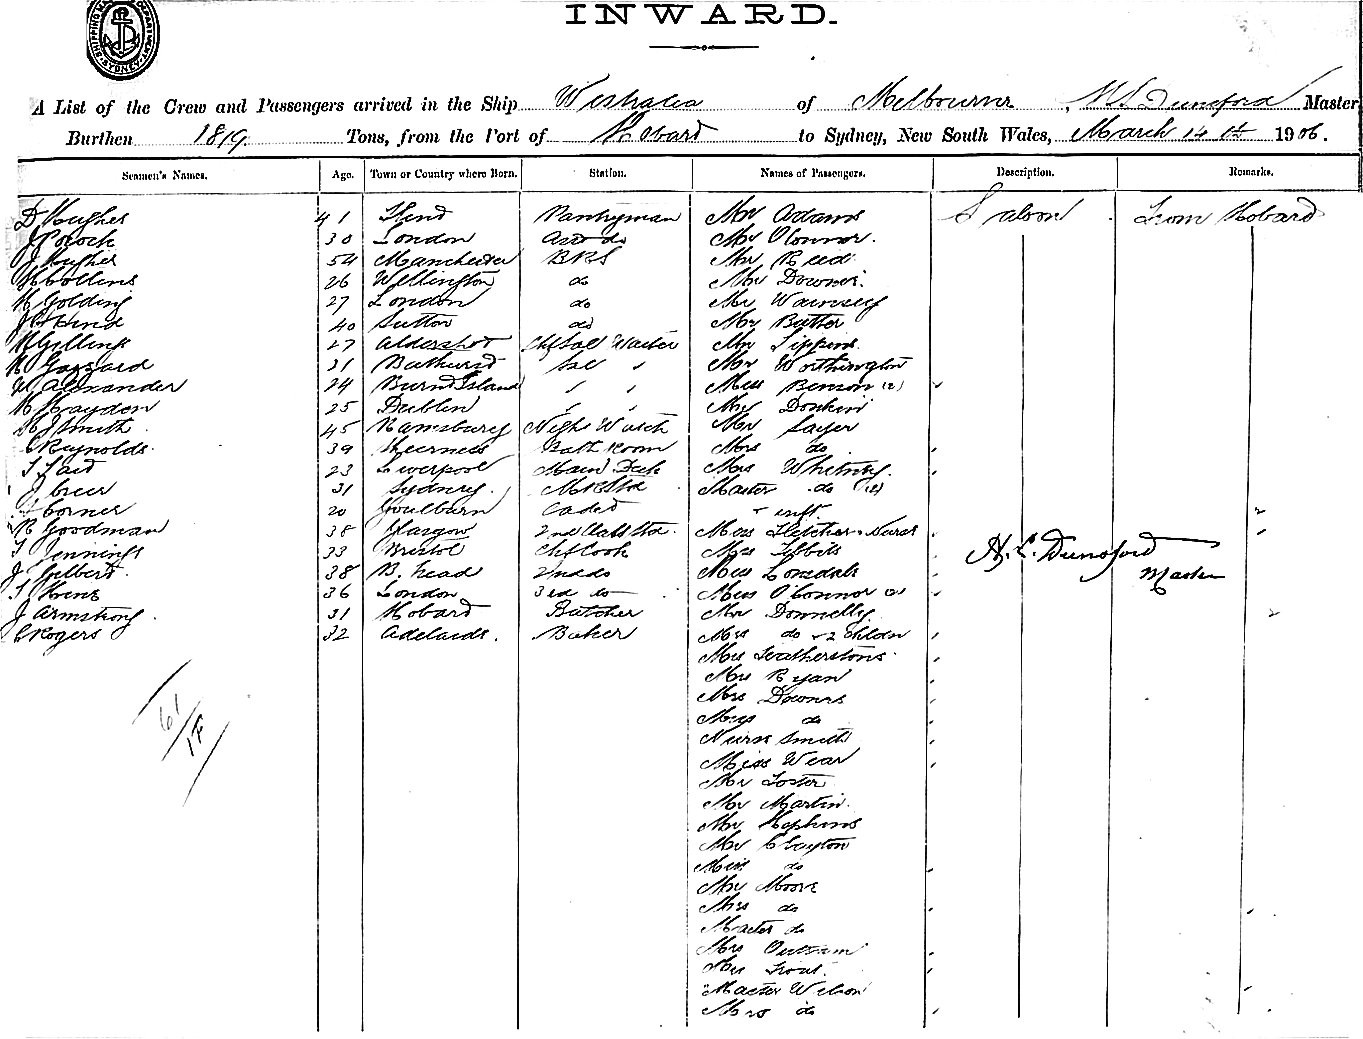 SHIPPING MASTER'S DEPARTMENT SYDNEY
INWARD.
A List of the Crew and Passengers arrived in the Ship Westralia of Melbourne, Dunsford Master
Burthen 1819 Tons, from the Port of Hobard to Sydney, New South Wales, March 14th 1906.
Seamen's Names. Age. Town or Country where Born. Station. Names of Passengers. Description. Remarks.
D Hughes 41 Pantryman Mr Adams Saloon From Hobard
J Pocock 30 London Asst do Mr O'Connor.
J Hughes 54 Manchester BRS Mr Reed
H Collins 26 Wellington do Mr Downes.
H Golding 27 London do Mr
40 Sutton do Mr Butler
27 Aldershot Chf Sal Waiter Mr Tippins.
31 Bathurst Sal " Mr Worthington
W Alexander 24 Burnt Island " " Miss Benson (2) "
H Haydon 25 Dublin " " Mr Donkin
H J Smith 45 Ramsbury Night Watch Mr Sayer
C Reynolds. 39 Sheerness Bath Room Mrs do "
T Laid 23 Liverpool Main Deck Mrs Whitney. "
J Creer 31 Sydney. Master do (2)
Corner 20 Goulburn Cadet " inft.
R Goodman 38 Glasgow 2nd Class Std. Miss Fletcher + Nurse
T Jennings 33 Bristol Chf Cook Mrs Tibbits H. L. Dunsford
J Gilbert. 38 B. head 2nd do Miss Lonsdale Master
36 London 3rd do Miss O'Connor
J Armstrong 31 Hobard Butcher Mr Donnelly
C Rogers 32 Adelaide. Baker Mrs do + 2 children "
Mrs Featherstone. "
Mrs Ryan "
Mrs Downes "
Miss do "
Nurse Smith "
Miss Wear "
Mr Foster
Mr Martin.
Mr Hopkins
Mr Clayton
Miss do "
Mr Moore
Mrs do "
Master do
Mrs Outram "
Mrs "
Master Wilson
Mrs do "
61/18